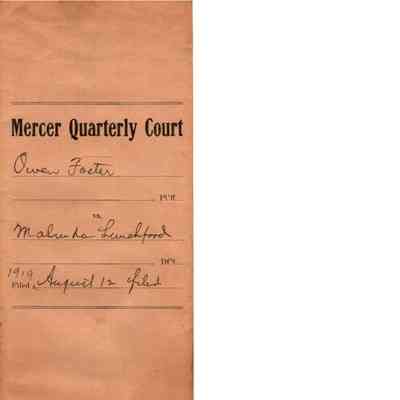 Mercer Quarterly Court
Owen Foster
Pl'ff.
vs.
Malinda Lunchford
Def't.
1919
Filed August 12 filed